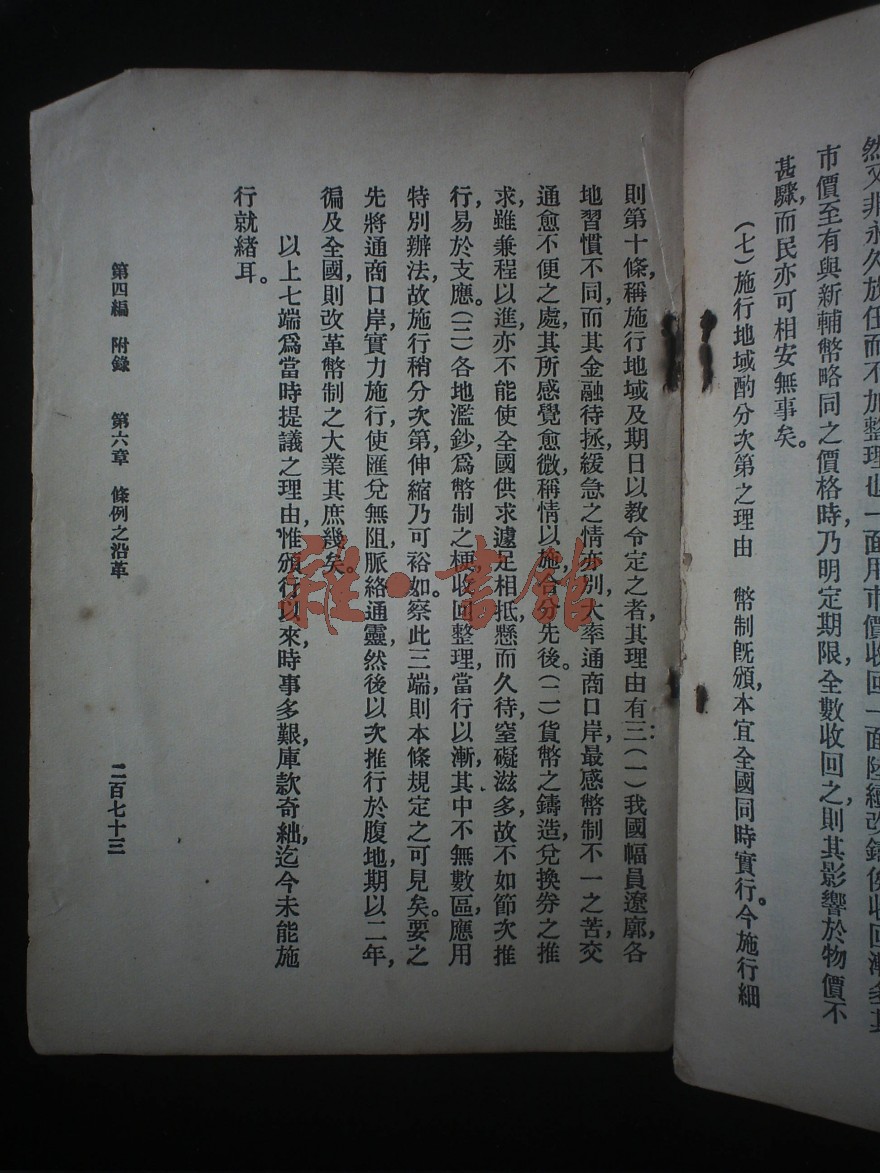 市價至有與新輔幣略同之價格時,乃明定期限,全數收回之,則其影響於物價不
甚驟,而民亦可相安無事矣。
(七)施行地域酌分次第之理由 幣制旣頒,本宜全國同時實行。今施行細
則第十條,稱施行地域及期日以教令定之者,其理由有三:(一)我國幅員遼廓,各
地習慣不同,而其金融待拯,緩急之情亦別,大率通商口岸,最感幣制不一之苦,交
通愈不便之處,其所感覺愈微,稱情以施,合分先後。(二)貨幣之鑄造,兌換劵之推
求,雖兼程以進,亦不能使全國供求遽足相抵,懸而久待,窒礙滋多,故不如節次推
行,易於支應。(三)各地濫鈔,爲幣制之梗,收回整理,當行以漸,其中不無數區,應用
特別辦法,故施行稍分次第,伸縮乃可裕如。察此三端,則本條規定之可見矣。要之
先將通商口岸實力施行,使匯兌無阻,脈絡通靈,然後以次推行於腹地,期以二年,
徧及全國,則改革幣制之大業其庶幾矣。
以上七端,爲當時提議之理由,惟頒行以來,時事多艱,庫款奇絀,迄今未能施
行就緒耳。
第四編 附錄 第六章 條例之沿革
二百七十三
雜·書館